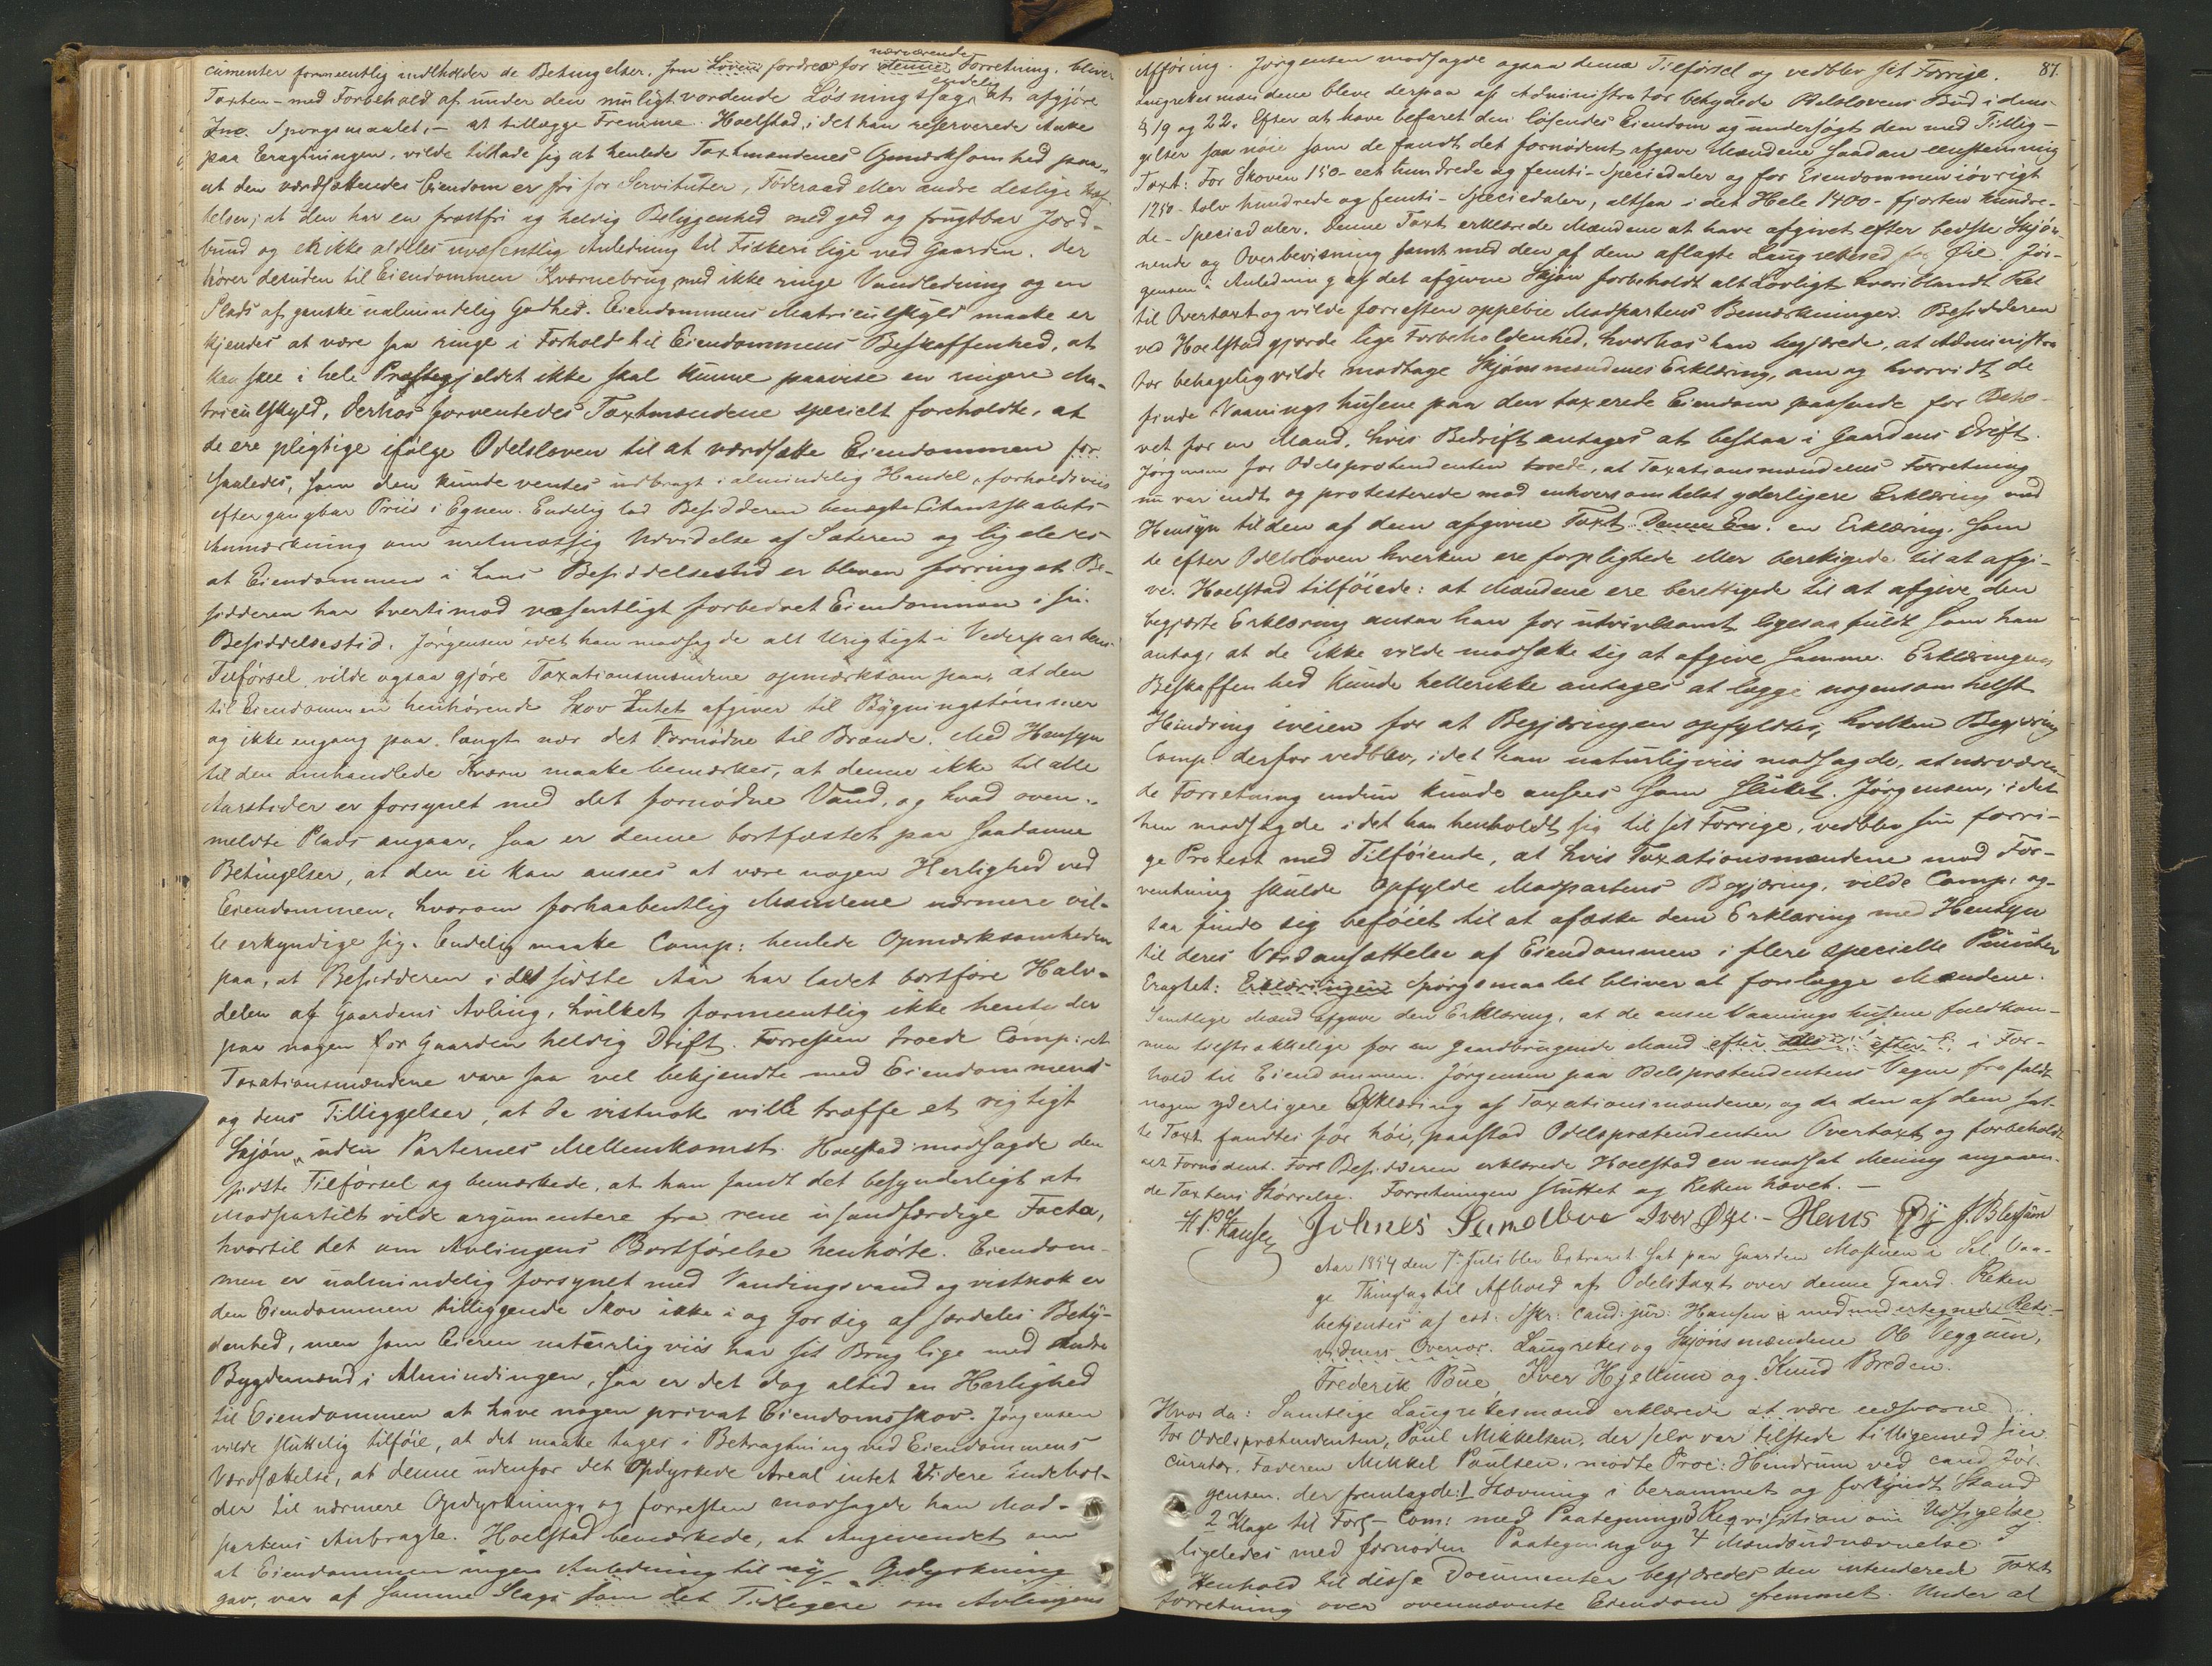 nærværende
cumenter formeentlig indholder de Betingelser, som Loven fordrer for denne Forretning, bliver
Taxten – med Forbehold af under den muligt vordende Løsningssag endelig at afgjøre
Spørgsmaalet, – at tillægge Fremme. Hoelstad, idet han reserverede Anke
paa Eragtningen, vilde tillade sig at henlede Taxtmændenes Opmærksomhed paa,
at den værdsættendes Eiendom er fri for Servituter, Føderaad eller andre deslige Hef-
telser; at den har en frostfri og heldig Beliggenhed med god og frugtbar Jord-
bund og ei ikke aldeles uvæsentlig Anledning til Fiskeri lige ved Gaarden. Der
hører desuden til Eiendommen Kværnebrug med ikke ringe Vandledning og en
Plads af ganske ualmindelig Godhed. Eiendommens Matriculskyld maatte er-
kjendes at være saa ringe i Forhold til Eiendommens Beskaffenhed, at
kan skee i hele Præstegjeldet ikke skal kunne paavise en ringere Ma-
triculskyld, Derhos forventedes Taxtmændene specielt foreholdte, at
de ere pligtige ifølge Odelsloven til at værdsætte Eiendommen for
saaledes, som den kunde ventes udbragt i almindelig Handel, forholdsviis
efter gangbar Priis i Egnen. Endelig lod Besidderen benægte Citantskabets
Anmærkning om uretmæssig Udvidelse af Sæteren og ligeledes
at Eiendommen i hans Besiddelsestid er bleven forringet. Be-
sidderen har tvertimod væsentligt forbedret Eiendommen i sin
Besiddelsestid. Jørgensen idet han modsagde alt Urigtigt i Vederpartens
Tilførsel vilde ogsaa gjøre Taxationsmændene opmærksom paa, at den
til Eiendommen henhørende Skov Intet afgiver til Bygningstømmer
og ikke engang paa langt nær det Fornødne til Brænde. Med Hensyn
til den omhandlede Kværn maatte bemærkes, at denne ikke til alle
Aarstider er forsynet med det fornødne Vand, og hvad oven-
meldte Plads angaar, saa er denne bortfæstet paa saadanne
Betingelser, at den ei kan ansees at være nogen Herlighed ved
Eiendommen, hvorom forhaabentlig Mændene nærmere vil-
le erkyndige sig. Endelig maatte Comp: henlede Opmærksomheden
paa, at Besidderen i det sidste Aar har ladet bortføre Halv-
delen af Gaardens Avling, hvilket formeentlig ikke hentyder
paa nogen for Gaarden heldig Drift. Forresten troede Comp: at
Taxationsmændene vare saa vel bekjendte med Eiendommens
og dens Tilliggelser, at de vistnok ville træffe et rigtigt
Skjøn, uden Parternes Mellemkomst. Hoelstad modsagde den
sidste Tilførsel og bemærkede, at han fandt det besynderligt at
Modpartiet vilde argumentere fra rene usandfærdige Facta,
hvortil det om Avlingens Bortførelse henhørte. Eiendom-
men er ualmindelig forsynet med Vandingsvand og vistnok er
den Eiendommen tilliggende Skov ikke i og for sig af særdeles Bety-
denhed, men som Eieren naturlig viis har sit Brug lige med Andre
Bygdemænd i Almindingen, saa er det dog altid en Herlighed
til Eiendommen at have nogen privat Eiendomsskov. Jørgensen
vilde sluttelig tilføie, at det maatte tages i Betragtning ved Eiendommens
Værdsættelse, at denne udenfor det Opdyrkede Areal intet Videre indehol-
der til nærmere Opdyrkning, og forresten modsagde han Mod-
partens Anbragte. Hoelstad bemærkede, at Angivendet om
at Eiendommen ingen Anledning til ny Opdyrkning
gav, var af samme Slags som det Tidligere om Avlingens
87.
Afføring. Jørgensen modsagde ogsaa denne Tilførsel og vedblev sit Forrige.
Laugrettesmændene bleve derpaa af Administrator betydede Odelslovens Bud i dens
§ 19 og 22. Efter at have befaret den løsendes Eiendom og undersøgt den med Tillig-
gelser saa nøie som de fandt det fornødent afgave Mændene saadan eenstemmig
Taxt: For Skoven 150 – eet hundrede og femti – Speciedaler og for Eiendommen iøvrigt
1250 – tolv hundrede og femti – Speciedaler, altsaa i det Hele 1400 – fjorten hundre-
de – Speciedaler. Denne Taxt erklærede Mændene at have afgivet efter bedste Skjøn-
nende og Overbevisning samt med den af dem aflagte Laugretteseed for Øie. Jør-
gensen i Anledning af det afgivne Skjøn forbeholdt alt Lovligt hvoriblandt Ret
til Overtaxt og vilde forresten oppebie Modpartens Bemærkninger. Besidderen
ved Hoelstad gjorde lige Forbeholdenhed, hvorhos han begjærede, at Administra-
tor behagelig vilde modtage Skjønsmændenes Erklæring, om og hvorvidt de
finde Vaaningshusene paa den taxerede Eiendom passende for Beho-
vet for en Mand, hvis Bedrift antages at bestaa i Gaardens Drift.
Jørgensen for Odelsprætendenten troede, at Taxationsmændenes Forretning
nu var endt og protesterede mod enhversomhelst yderligere Erklæring med
Hensyn til den af dem afgivne Taxt Denne En. en Erklæring, som
de efter Odelsloven hverken ere forpligtede eller berettigede til at afgi-
ve. Hoelstad tilføiede: at Mændene ere berettigede til at afgive den
begjærte Erklæring ansaa han for utvivlsomt ligesaa fuldt som han
antog, at de ikke vilde modsætte sig at afgive samme. Erklæringens
Beskaffenhed kunde hellerikke antages at lægge nogensomhelst
Hindring iveien for at Begjæringen opfyldtes, hvilken Begjæring
Comp. derfor vedblev, idet han naturligviis modsagde, at nærværen-
de Forretning endnu kunde ansees som sluttet. Jørgensen, idet
han modsagde idet han henholdt sig til sit Forrige, vedblev sin forri-
ge Protest med Tilføiende, at hvis Taxationsmændene mod For-
ventning skulde opfylde Modpartens Begjæring, vilde Comp: og-
saa finde sig beføiet til at afæske dem Erklæring med Hensyn
til deres Værdiansættelse af Eiendommen i flere specielle Puncter
Eragtet: Erklæringen Spørgsmaalet bliver at forelægge Mændene.
Samtlige Mænd afgave den Erklæring, at de ansee Vaaningshusene fuldkom-
men tilstrækkelige for en gaardbrugende Mand efter efter i For-
hold til Eiendommen. Jørgensen paa Odelsprætendentens Vegne frafaldt
nogen yderligere Erklæring af Taxationsmændene, og da den af dem sat-
te Taxt fandtes for høi, paastod Odelsprætendenten Overtaxt og forbeholdt
alt Fornødent. For Besidderen erklærede Hoelstad en modsat Mening angaaen-
de Taxtens Størrelse. Forretningen sluttet og Retten hævet. –
Hansen Johnes Sundbve Iver Øye. – Hans J. Blessum
Aar 1854 den 7de Juli blev Extraret sat paa Gaarden i Sel. Vaa-
ge Thinglag til Afhold af Odelstaxt over denne Gaard. Retten
betjentes af cst. Skr: Cand: jur: Hansen med undertegnede Rets-
vidner Ovenov. Laugrettes og Skjønsmændene Ole Veggum,
Frederik Bue, Iver Hjellum og Knud Breden.
Hvor da: Samtlige Laugrettesmænd erklærede at være eedsvorne
For Odelsprætendenten, Poul Mikkelsen, der selv var tilstede tilligemed sin
Curator, Faderen Mikkel Poulsen, mødte Proc: Hindrum ved cand. Jør-
gensen, der fremlagde: 1 Stævning i berammet og forkyndt Stand
2 Klage til Forl: Com: med Paategning 3 Reqvisition om Udsigelse
ligeledes med fornøden Paategning og 4 Mændsudnævnelse. I
Henhold til disse Documenter begjæredes den intenderede Taxt
forretning over ovennævnte Eiendom fremmet. Under al